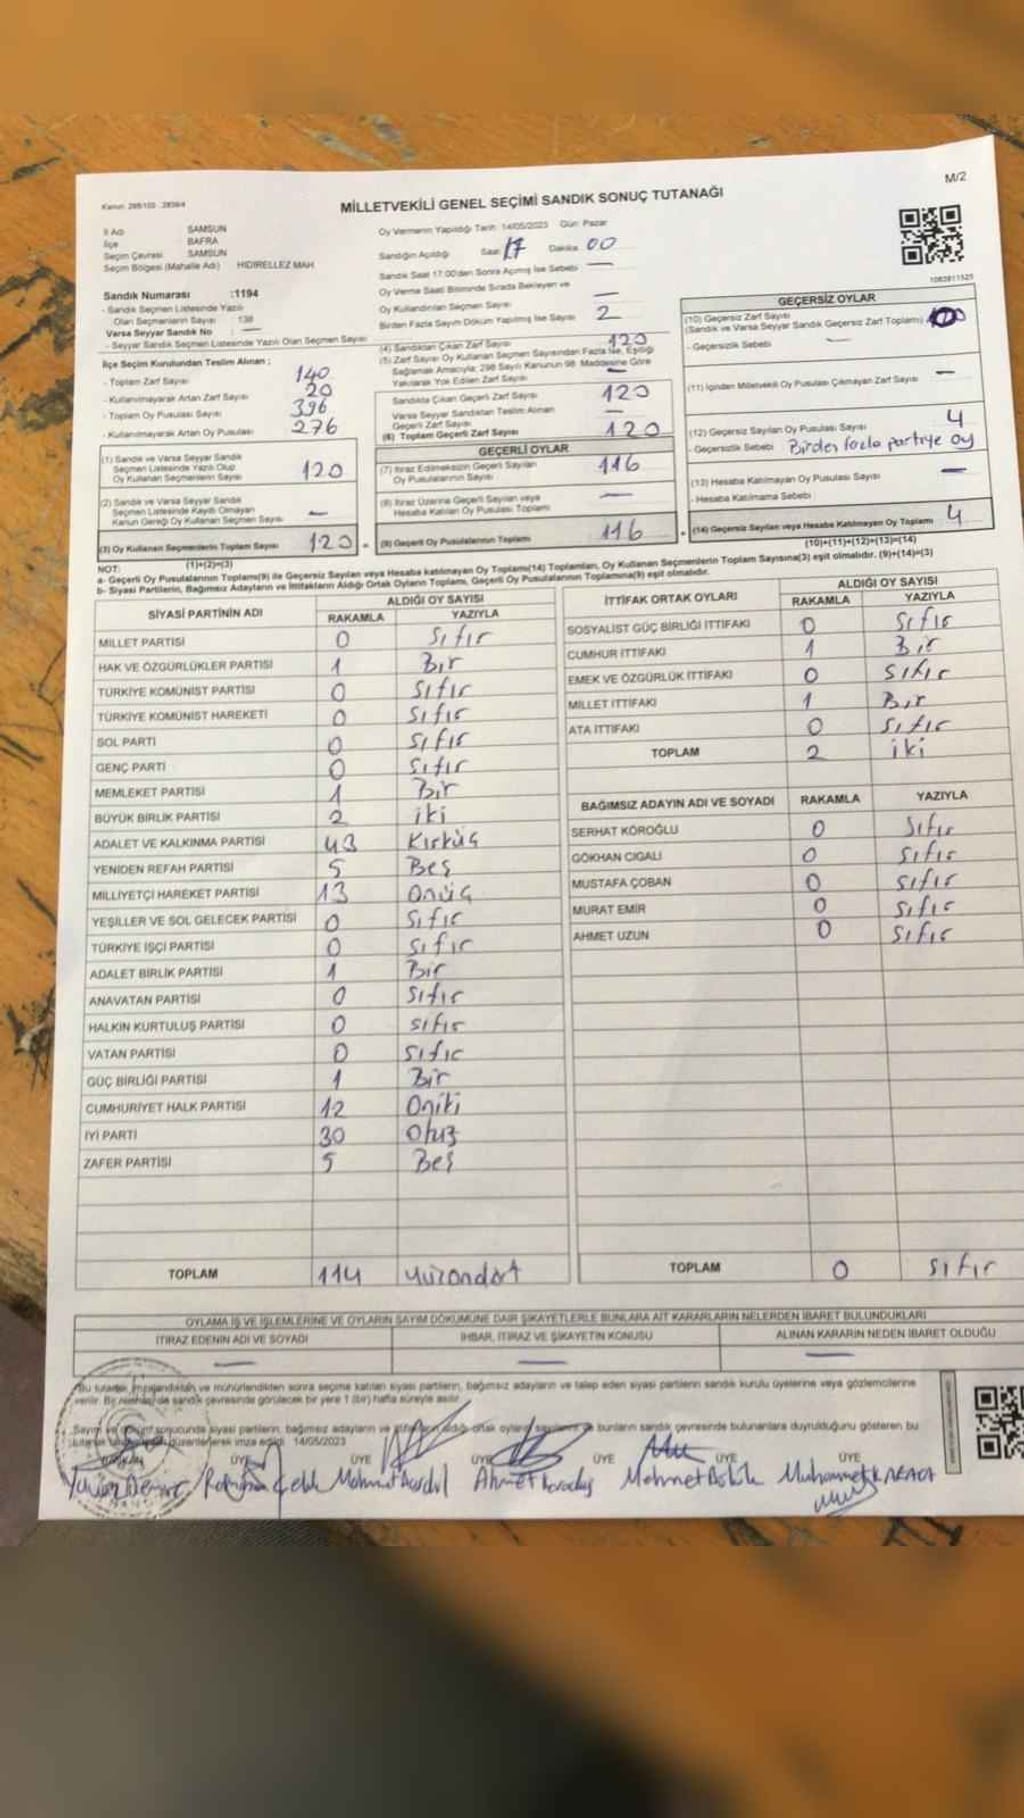 M/2
MİLLETVEKİLİ GENEL SEÇİMİ SANDIK SONUÇ TUTANAĞI
İl Adı SAMSUN
İlçe BAFRA
Seçim Çevresi SAMSUN
Seçim Bölgesi (Mahalle Adı) HIDIRELLEZ MAH
Sandık Numarası :1194
- Sandık Seçmen Listesinde Yazılı
Olan Seçmenlerin Sayısı : 138
Varsa Seyyar Sandık No : —
- Seyyar Sandık Seçmen Listesinde Yazılı Olan Seçmen Sayısı
Oy Vermenin Yapıldığı Tarih 14/05/2023 Gün Pazar
Sandığın Açıldığı Saat 17 Dakika 00
Sandık Saat 17:00'den Sonra Açılmış İse Sebebi —
Oy Verme Saati Bitiminde Sırada Bekleyen ve
Oy Kullandırılan Seçmen Sayısı —
Birden Fazla Sayım Döküm Yapılmış İse Sayısı 2
İlçe Seçim Kurulundan Teslim Alınan ;
- Toplam Zarf Sayısı 140
- Kullanılmayarak Artan Zarf Sayısı 20
- Toplam Oy Pusulası Sayısı 396
- Kullanılmayarak Artan Oy Pusulası 276
(1) Sandık ve Varsa Seyyar Sandık
Seçmen Listesinde Yazılı Olup
Oy Kullanan Seçmenlerin Sayısı 120
(2) Sandık ve Varsa Seyyar Sandık
Seçmen Listesinde Kaydı Olmayan
Kanun Gereği Oy Kullanan Seçmen Sayısı —
(3) Oy Kullanan Seçmenlerin Toplam Sayısı 120
(1)+(2)=(3)
(4) Sandıktan Çıkan Zarf Sayısı 120
(5) Zarf Sayısı Oy Kullanan Seçmen Sayısından Fazla İse, Eşitliği
Sağlamak Amacıyla; 298 Sayılı Kanunun 98. Maddesine Göre
Yakılarak Yok Edilen Zarf Sayısı —
Sandıkta Çıkan Geçerli Zarf Sayısı 120
Varsa Seyyar Sandıktan Teslim Alınan
Geçerli Zarf Sayısı —
(6) Toplam Geçerli Zarf Sayısı 120
GEÇERLİ OYLAR
(7) İtiraz Edilmeksizin Geçerli Sayılan
Oy Pusulalarının Sayısı 116
(8) İtiraz Üzerine Geçerli Sayılan veya
Hesaba Katılan Oy Pusulası Toplamı —
(9) Geçerli Oy Pusulalarının Toplamı 116
GEÇERSİZ OYLAR
(10) Geçersiz Zarf Sayısı
(Sandık ve Varsa Seyyar Sandık Geçersiz Zarf Toplamı)
- Geçersizlik Sebebi —
(11) İçinden Milletvekili Oy Pusulası Çıkmayan Zarf Sayısı —
(12) Geçersiz Sayılan Oy Pusulası Sayısı 4
- Geçersizlik Sebebi Birden fazla partiye oy
(13) Hesaba Katılmayan Oy Pusulası Sayısı —
- Hesaba Katılmama Sebebi
(14) Geçersiz Sayılan veya Hesaba Katılmayan Oy Toplamı 4
(10)+(11)+(12)+(13)=(14)
NOT:
a- Geçerli Oy Pusulalarının Toplamı(9) ile Geçersiz Sayılan veya Hesaba katılmayan Oy Toplamı(14) Toplamları, Oy Kullanan Seçmenlerin Toplam Sayısına(3) eşit olmalıdır. (9)+(14)=(3)
b- Siyasi Partilerin, Bağımsız Adayların ve İttifakların Aldığı Ortak Oyların Toplamı, Geçerli Oy Pusulalarının Toplamına(9) eşit olmalıdır.
SİYASİ PARTİNİN ADI ALDIĞI OY SAYISI
RAKAMLA YAZIYLA
MİLLET PARTİSİ 0 Sıfır
HAK VE ÖZGÜRLÜKLER PARTİSİ 1 Bir
TÜRKİYE KOMÜNİST PARTİSİ 0 Sıfır
TÜRKİYE KOMÜNİST HAREKETİ 0 Sıfır
SOL PARTİ 0 Sıfır
GENÇ PARTİ 0 Sıfır
MEMLEKET PARTİSİ 1 Bir
BÜYÜK BİRLİK PARTİSİ 2 iki
ADALET VE KALKINMA PARTİSİ 43 Kırküç
YENİDEN REFAH PARTİSİ 5 Beş
MİLLİYETÇİ HAREKET PARTİSİ 13 Onüç
YEŞİLLER VE SOL GELECEK PARTİSİ 0 Sıfır
TÜRKİYE İŞÇİ PARTİSİ 0 Sıfır
ADALET BİRLİK PARTİSİ 1 Bir
ANAVATAN PARTİSİ 0 Sıfır
HALKIN KURTULUŞ PARTİSİ 0 sıfır
VATAN PARTİSİ 0 Sıfır
GÜÇ BİRLİĞİ PARTİSİ 1 Bir
CUMHURİYET HALK PARTİSİ 12 Oniki
İYİ PARTİ 30 Otuz
ZAFER PARTİSİ 5 Beş
TOPLAM 114 Yüzondört
İTTİFAK ORTAK OYLARI ALDIĞI OY SAYISI
RAKAMLA YAZIYLA
SOSYALİST GÜÇ BİRLİĞİ İTTİFAKI 0 Sıfır
CUMHUR İTTİFAKI 1 Bir
EMEK VE ÖZGÜRLÜK İTTİFAKI 0 Sıfır
MİLLET İTTİFAKI 1 Bir
ATA İTTİFAKI 0 Sıfır
TOPLAM 2 iki
BAĞIMSIZ ADAYIN ADI VE SOYADI RAKAMLA YAZIYLA
SERHAT KÖROĞLU 0 Sıfır
GÖKHAN CIGALI 0 Sıfır
MUSTAFA ÇOBAN 0 Sıfır
MURAT EMİR 0 Sıfır
AHMET UZUN 0 Sıfır
TOPLAM 0 Sıfır
OYLAMA İŞ VE İŞLEMLERİNE VE OYLARIN SAYIM DÖKÜMÜNE DAİR ŞİKAYETLERLE BUNLARA AİT KARARLARIN NELERDEN İBARET BULUNDUKLARI
İTİRAZ EDENİN ADI VE SOYADI İHBAR, İTİRAZ VE ŞİKAYETİN KONUSU ALINAN KARARIN NEDEN İBARET OLDUĞU
— — —
Bu tutanak, imzalandıktan ve mühürlendikten sonra seçime katılan siyasi partilerin, bağımsız adayların ve talep eden siyasi partilerin sandık kurulu üyelerine veya gözlemcilerine
verilir. Bir nüshası da sandık çevresinde görülecek bir yere 1 (bir) hafta süreyle asılır.
siyasi partilerin, bağımsız adayların ve ortak oyların bunların sandık çevresinde bulunanlara duyrulduğunu gösteren bu
düzenlenerek imza edildi. 14/05/2023
ÜYE ÜYE ÜYE ÜYE ÜYE ÜYE
Mahmut Ahmet Karadaş Mehmet Muhammet KARACA